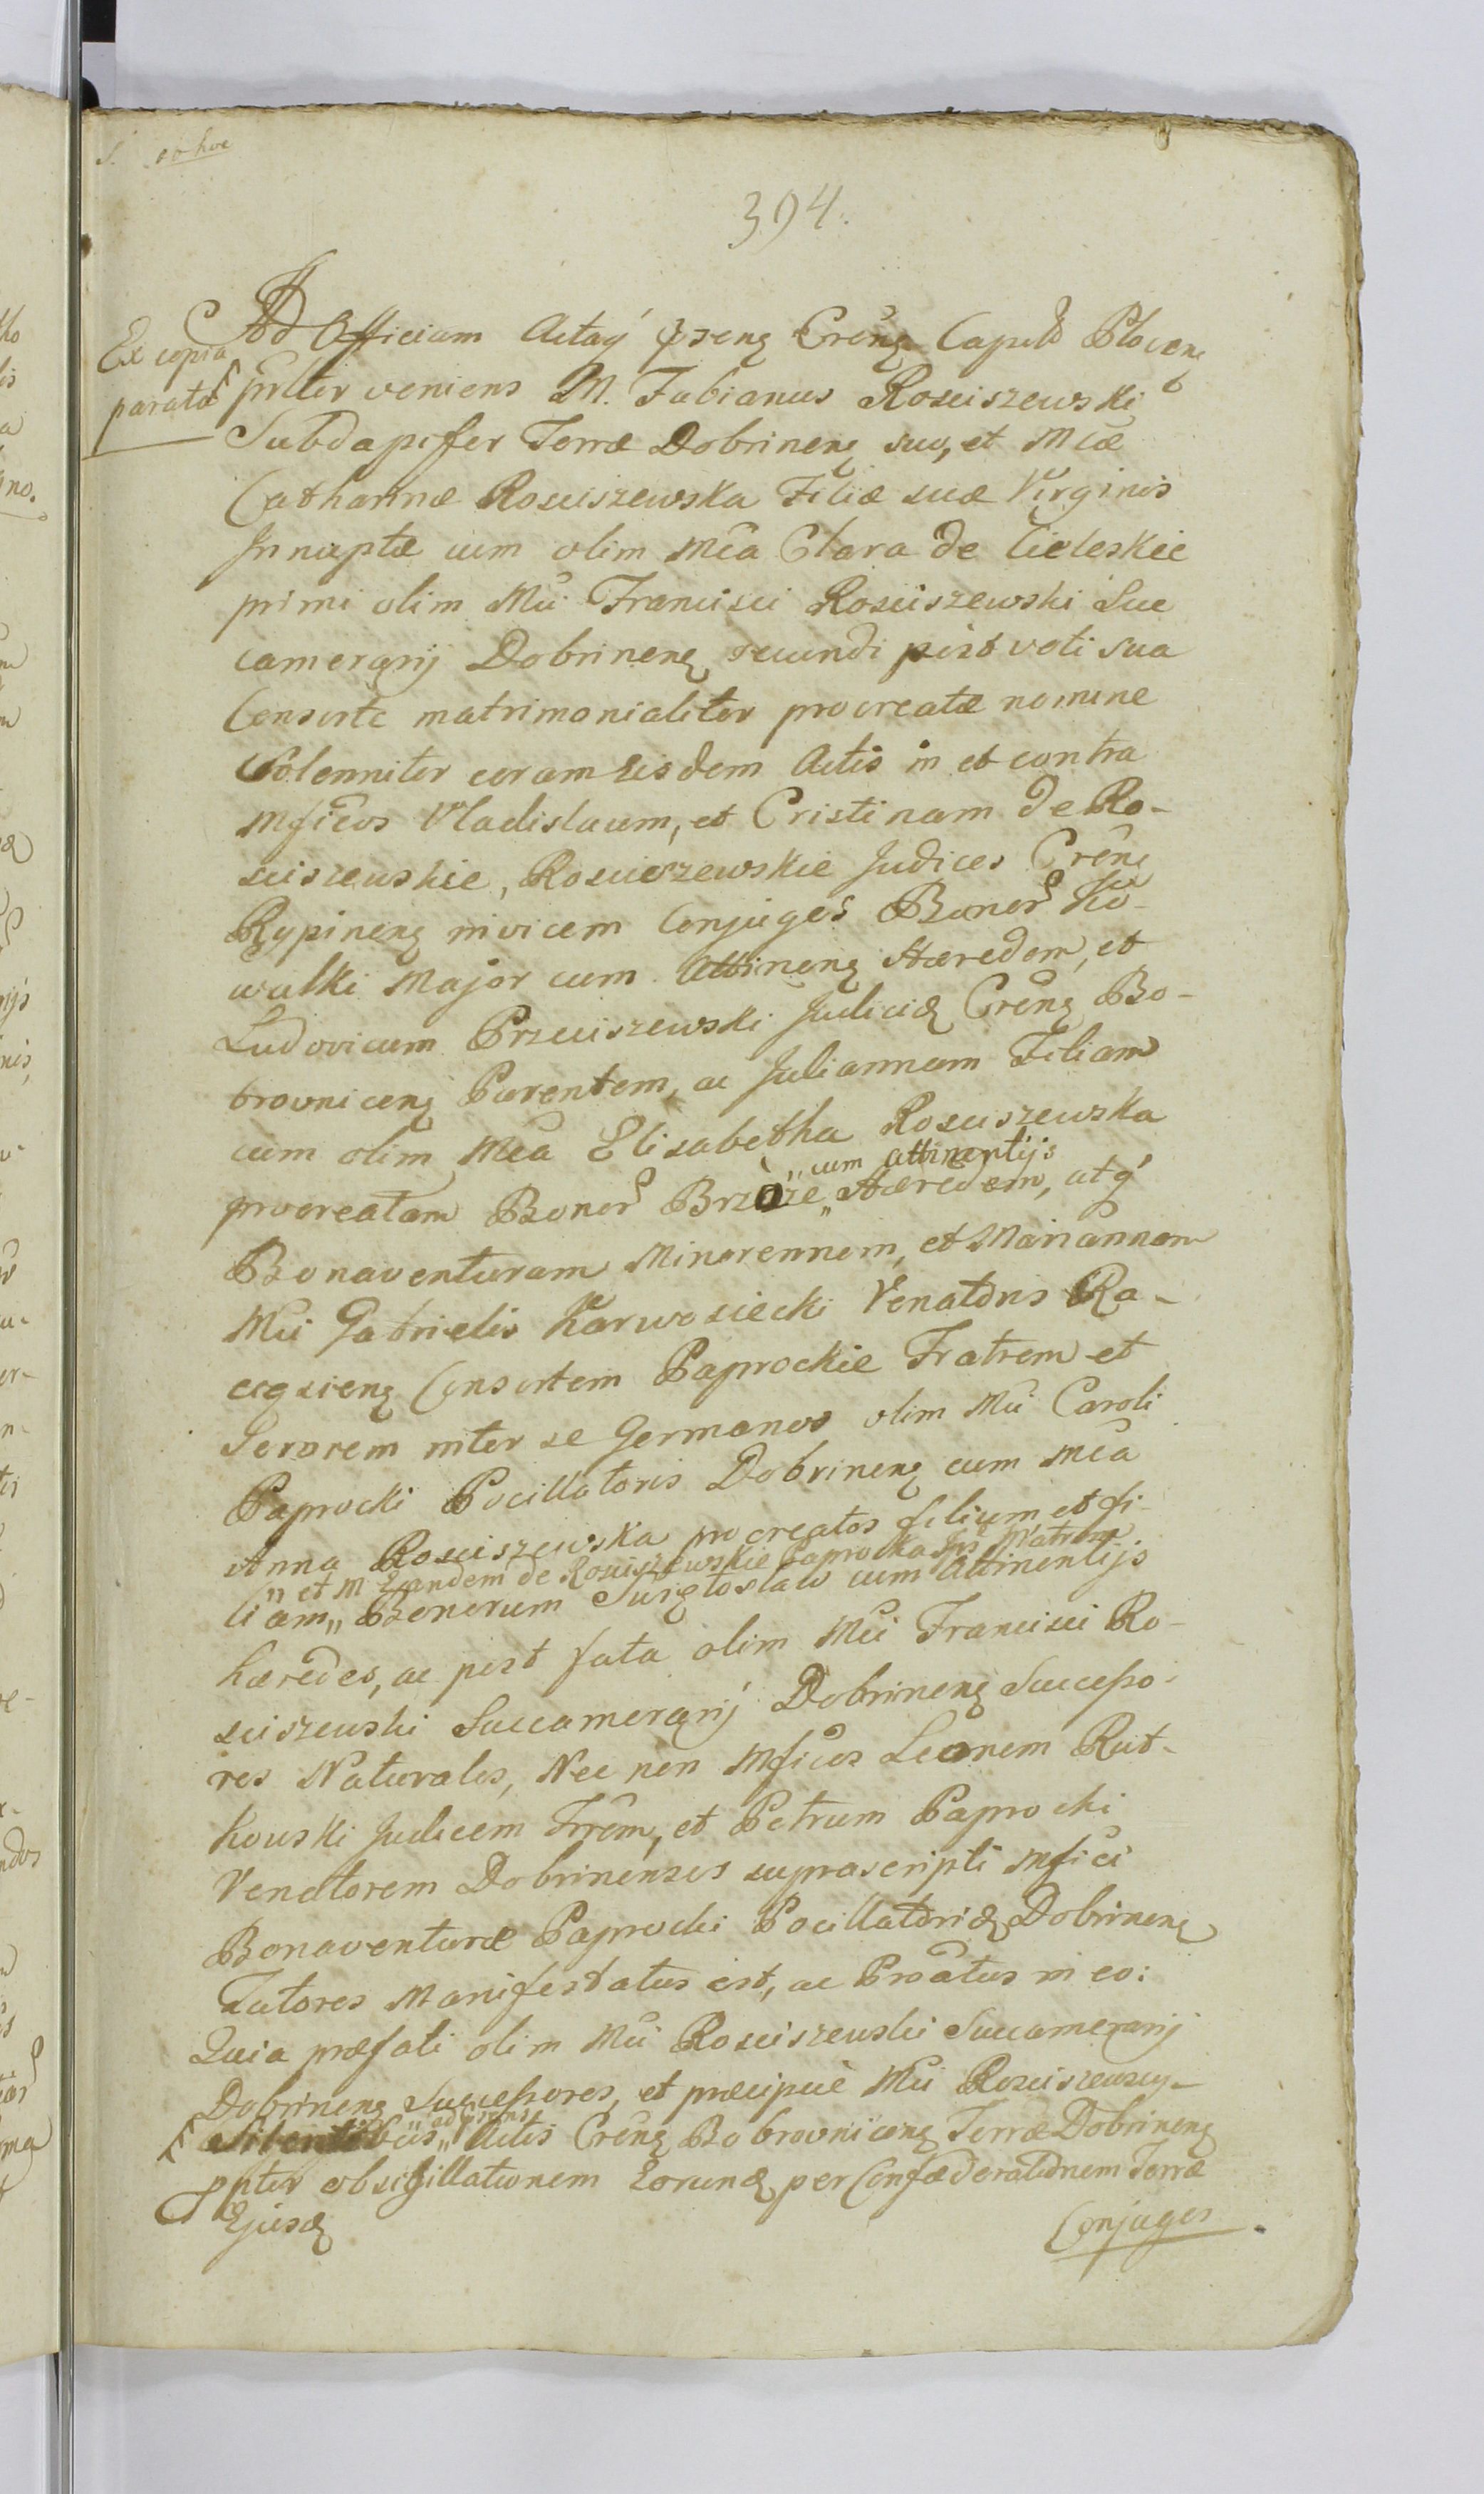 394.
Ex copia
parata
Ad Officium Actaq́ pseng Creng Capit Plocen
psltervniens M. Fabianus Rosciszewski
Subdapifer Terræ Dobrinen suo, et Mcæ
Catharinæ Rosciszewska Filiæ suæ Virginis
Innuptæ cum olim Mca Clara de Cieleskie
primi olim Mci Francisci Rosciszewski Suc
camerarij Dobrinen secundi post voti sua
Consorte matrimonialiter procreatæ nomine
Solenniter coram eisdem Actis in et contra
Mficos Vladislaum, et Cristinam de Ro-
sciszewskie, Rosciszewskie Judices Cren
Rypinen invicem Conjuges Bonor Ko-
walki Major cum Attinen Hæredem, et
Ludovicum Przeciszewski Judicid Cren Bo-
brownicen Parentem, ac Juliannam Filiam
cum olim Mca Elisabetha Rosciszewska
procreatam Bonor Brzoze „ cum attinentijs „ Hæredem, atq́
Bonaventuram Minorennem, et Mariannam
Mci Gabrielis Karwosiecki Venatoris Ra-
cigzien Consortem Paprockie Fratrem et
Sororem inter se Germanos olim Mci Caroli
Paprocki Pocillatoris Dobrinen cum Mca
Anna Rosciszewska procreatos filium et fi-
liam „ et M Eandem de Rosciszewskie Paprocka Ips Matrem „ Bonorum Swigtoslaw cum Attinentijs
hæredes, ac post fata olim Mci Francisci Ro-
sciszewski Succamerarij Dobrinen Successo-
res Naturales, Nec non Mficos Leonem Rut-
kowski Judicem Trrem, et Petrum Paprocki
Venatorem Dobrinenses suprascripti Mfici
Bonaventuræ Paprocki Pocillatorid Dobrinen
Tutores Manifestatus est, ac Proatus in eo:
Quia præfati olim Mci Rosciszewski Succamerarij
Dobrinen Successores, et præcipue Mci Rosciszewscy
Actis Cren Bobrownicen Terræ Dobrinen
ppter obsigillationem Eorund per Confæderationem Terræ
Ejusd
Conjuges